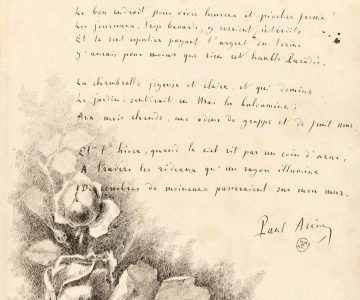 Le bon endroit pour vivre heureux et piocher ferme !
Les journaux, trop bavards, y seraient interdits ...
Et le seul espalier payant l'argent du terme
J'aurais pour moins que rien cet humble Paradis.
La chambrette joyeuse et claire, et qui domine
Le jardin, sentirait en Mai la balsamine ;
Aux mois chauds, une odeur de grappe et de fruit mûr.
Et l'hiver, quand le ciel rit par un coin d'azur,
A travers les rideaux qu'un rayon illumine
Des ombres de moineaux passeraient sur mon mur.
Paul Arène